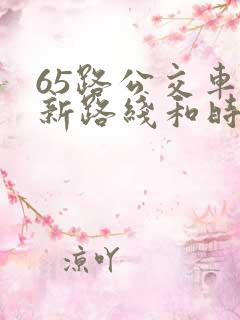 65路公交車
新路綫和時
凉吖